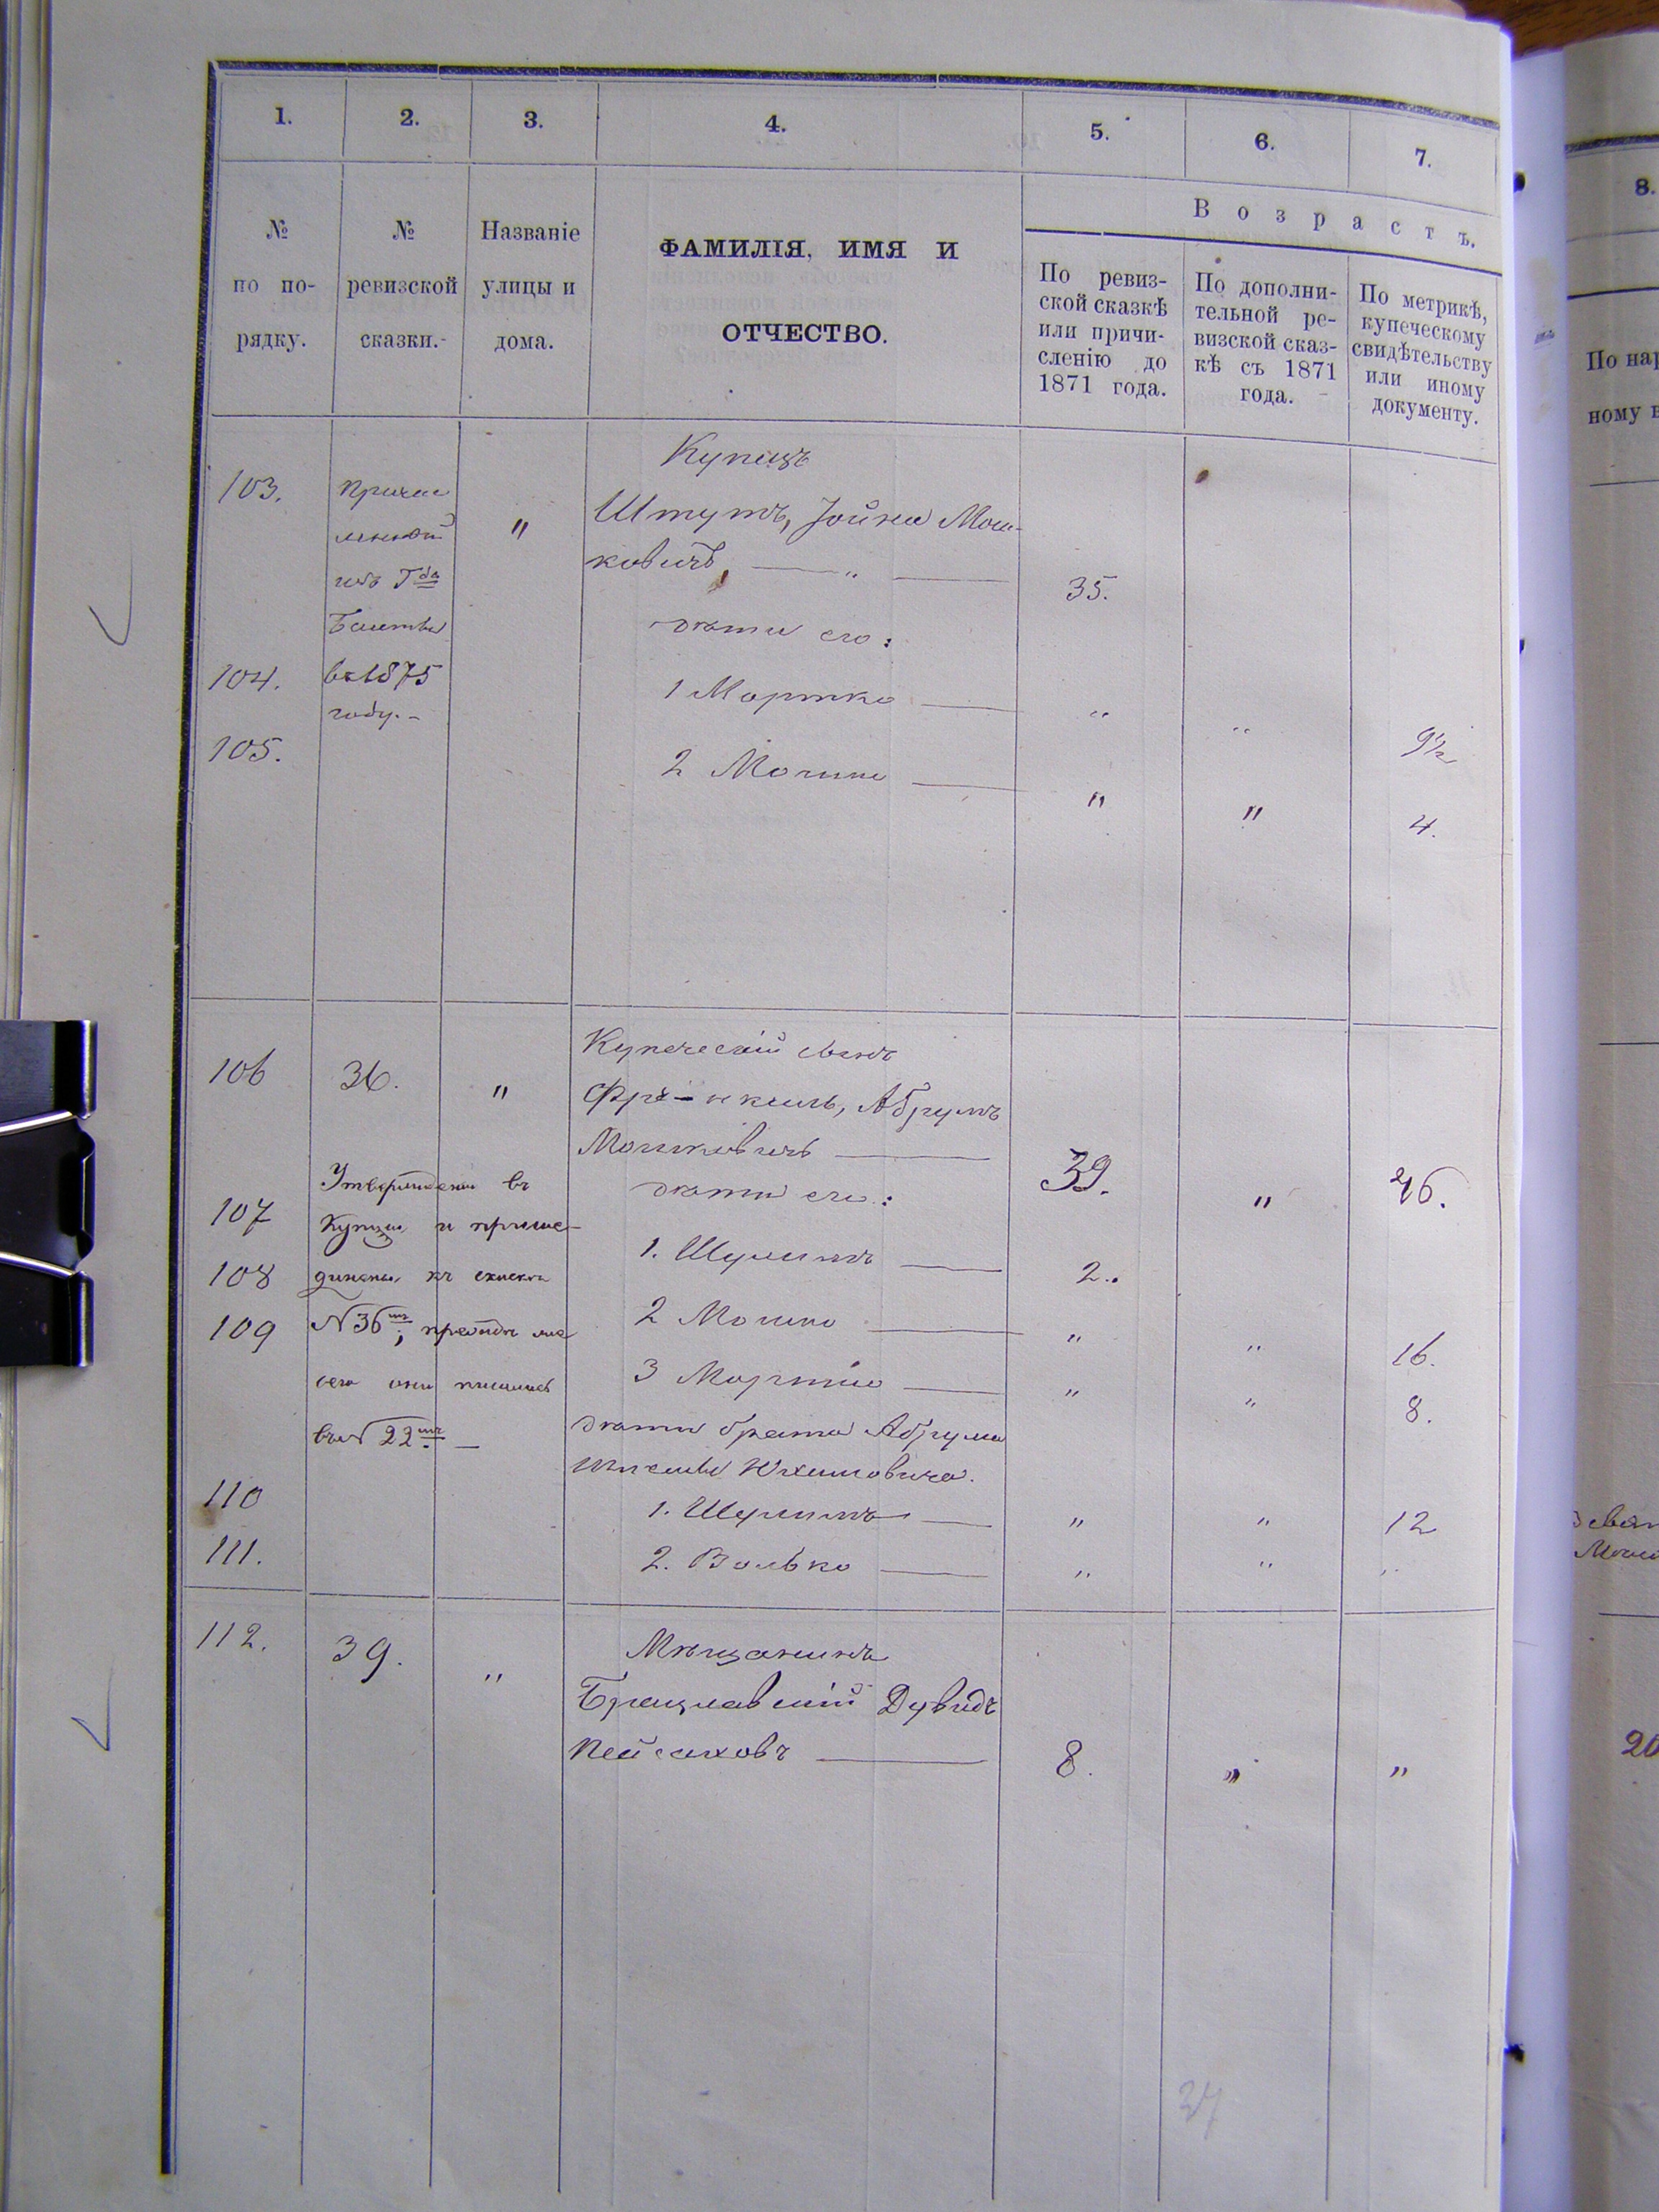 1. 2. 3. 4. 5. 6. 7.
№ по по- рядку.
№ ревизской сказки.
Названіе улицы и дома.
ФАМИЛІЯ, ИМЯ И
ОТЧЕСТВО.
Возрастъ.
По ревиз-
ской сказкѣ
или причи-
сленію до
1871 года.
По дополни-
тельной ре-
визской сказ-
кѣ съ 1871
года.
По метрикѣ,
купеческому
свидѣтельству
или иному
документу.
Купецъ
103. " Штутъ, Іойна Мош-
ковичъ, — " — 35.
изъ Гда
Балты
въ 1875
году. -
дѣти его:
104. 1 Мортко — " " 9½
105. 2 Мошко — " " 4.
Купеческій сынъ
106 36. " Абрумъ
Мошковичъ — 39. " 46.
Утверждены въ
купцы и присое-
динены къ
N 36; прежде
сего они писались
въ N 22 —
дѣти его:
107 1. Шулимъ — 2.
108 2 Мошко — " " 16.
109 3 Мортко — " " 8.
дѣти брата Абрума
110 1. Шулимъ — " " 12
111. 2. Волько — " " "
112. 39. " Мѣщанинъ
Брацлавскій Дувидъ
Пейсаховъ — 8. " "
37
8.
По нар
ному в
20